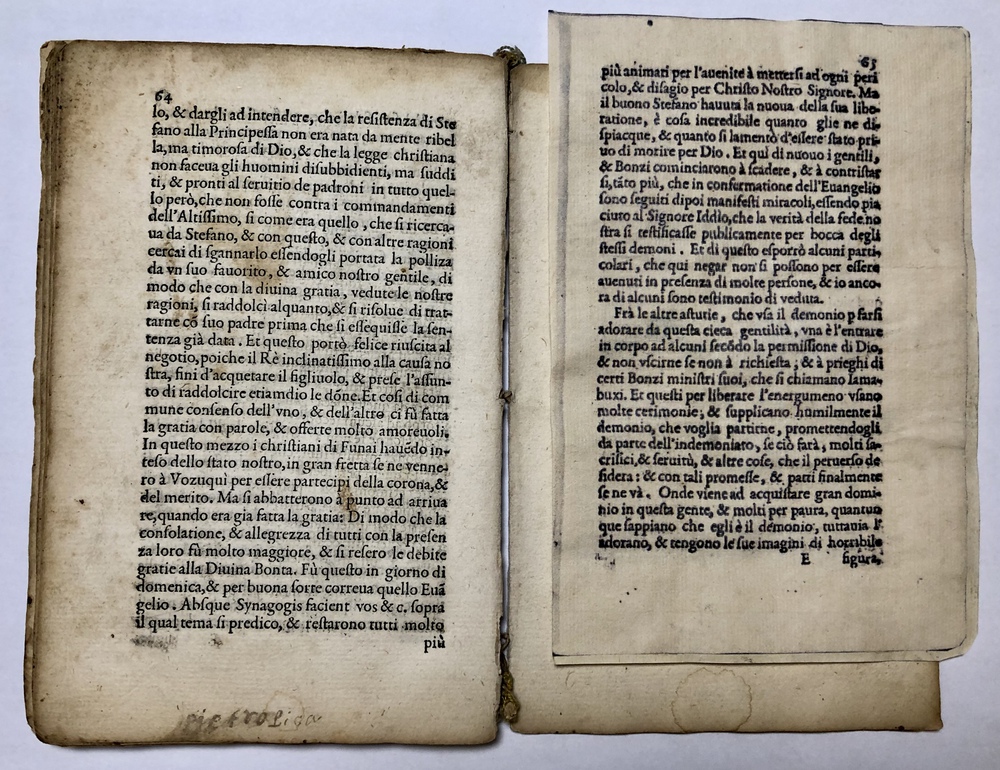 64
lo, & dargli ad intendere, che la resistenza di Ste
fano alla Principessa non era nata da mente ribel
la, ma timorosa di Dio, & che la legge christiana
non faceua gli huomini disubbidienti, ma suddi
ti, & pronti al seruitio de padroni in tutto quel-
lo però, che non fosse contra i commandamenti
dell'Altissimo, si come era quello, che si ricerca-
ua da Stefano, & con questo, & con altre ragioni
cercai di sgannarlo essendogli portata la polliza
da vn suo fauorito, & amico nostro gentile, di
modo che con la diuina gratia, vedute le nostre
ragioni, si raddolcì alquanto, & si risolue di trat-
tarne cō suo padre prima che si essequisse la sen-
tenza già data. Et questo portò felice riuscita al
negotio, poiche il Rè inclinatissimo alla causa no
stra, fini d'acquetare il figliuolo, & prese l'assun-
to di raddolcire etiamdio le dōne. Et cosi di com
mune consenso dell'vno, & dell'altro ci fù fatta
la gratia con parole, & offerte molto amoreuoli.
In questo mezzo i christiani di Funai hauēdo in-
teso dello stato nostro, in gran fretta se ne venne-
rò à Vozuquì per essere partecipi della corona, &
del merito. Ma si abbatterono à punto ad arriua
re, quando era gia fatta la gratia: Di modo che la
consolatione, & allegrezza di tutti con la presen
za loro fù molto maggiore, & si resero le debite
gratie alla Diuina Bonta. Fù questo in giorno di
domenica, & per buona sorte correua quello Euā
gelio. Absque Synagogis facient vos & c. sopra
il qual tema si predico, & restarono tutti molto
più
65
più animati per l'auenite à mettersi ad ogni peri
colo, & disagio per Christo Nostro Signore. Ma
il buono Stefano hauuta la nuoua della sua libe-
ratione, è cosa incredibile quanto glie ne di-
spiacque, & quanto si lamentò d'essere stato pri-
uo di morire per Dio. Et qui di nuouo i gentili,
& Bonzi cominciarono à scadere, & à contristar
si, tāto più, che in confermatione dell'Euangelio
sono seguiti dipoi manifesti miracoli, essendo pia
ciuto al Signore Iddio, che la verità della fede no
stra si testificasse publicamente per bocca degli
stessi demoni. Et di questo esporrò alcuni parti-
colari, che qui negar non si possono per essere
auenuti in presenza di molte persone, & io anco-
ra di alcuni sono testimonio di veduta.
Frà le altre asturie, che vsa il demonio p farsi
adorare da questa cieca gentilità, vna è l'entrare
in corpo ad alcuni secōdo la permissione di Dio,
& non vscirne se non à richiesta, & à prieghi di
certi Bonzi ministri suoi, che si chiamano Iama-
buxi. Et questi per liberare l'energumeno vsano
molte cerimonie; & supplicano humilmente il
demonio, che voglia partirne, promettendogli
da parte dell'indemoniato, se ciò farà, molti sa-
crifici, & seruitù, & altre cose, che il peruerso de
sidera: & con tali promesse, & patti finalmente
se ne và. Onde viene ad acquistare gran domi-
nio in questa gente, & molti per paura, quantun
que sappiano che egli è il demonio, tuttauia l'
adorano, & tengono le sue imagini di horribile
E figura,